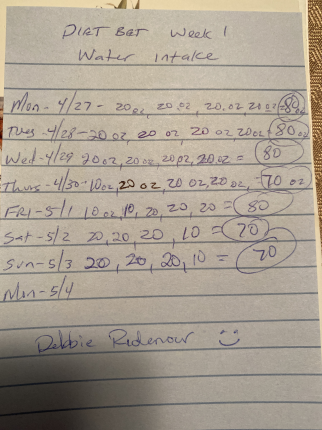 DIET BET Week 1
Water Intake
Mon - 4/27 - 20 oz, 20 oz, 20 oz 20 oz = 80 oz
Tues - 4/28 - 20 oz, 20 oz 20 oz 20 oz = 80 oz
Wed - 4/29 20 oz, 20 oz, 20 oz, 20 oz = 80
Thurs - 4/30 - 10 oz, 20 oz 20 oz, 20 oz, - 70 oz
FRI - 5/1 10 oz, 10, 20, 20, 20 = 80
Sat - 5/2 20, 20, 20, 10 = 70
Sun - 5/3 20, 20, 20, 10 = 70
Mon - 5/4
Debbie Ridenour